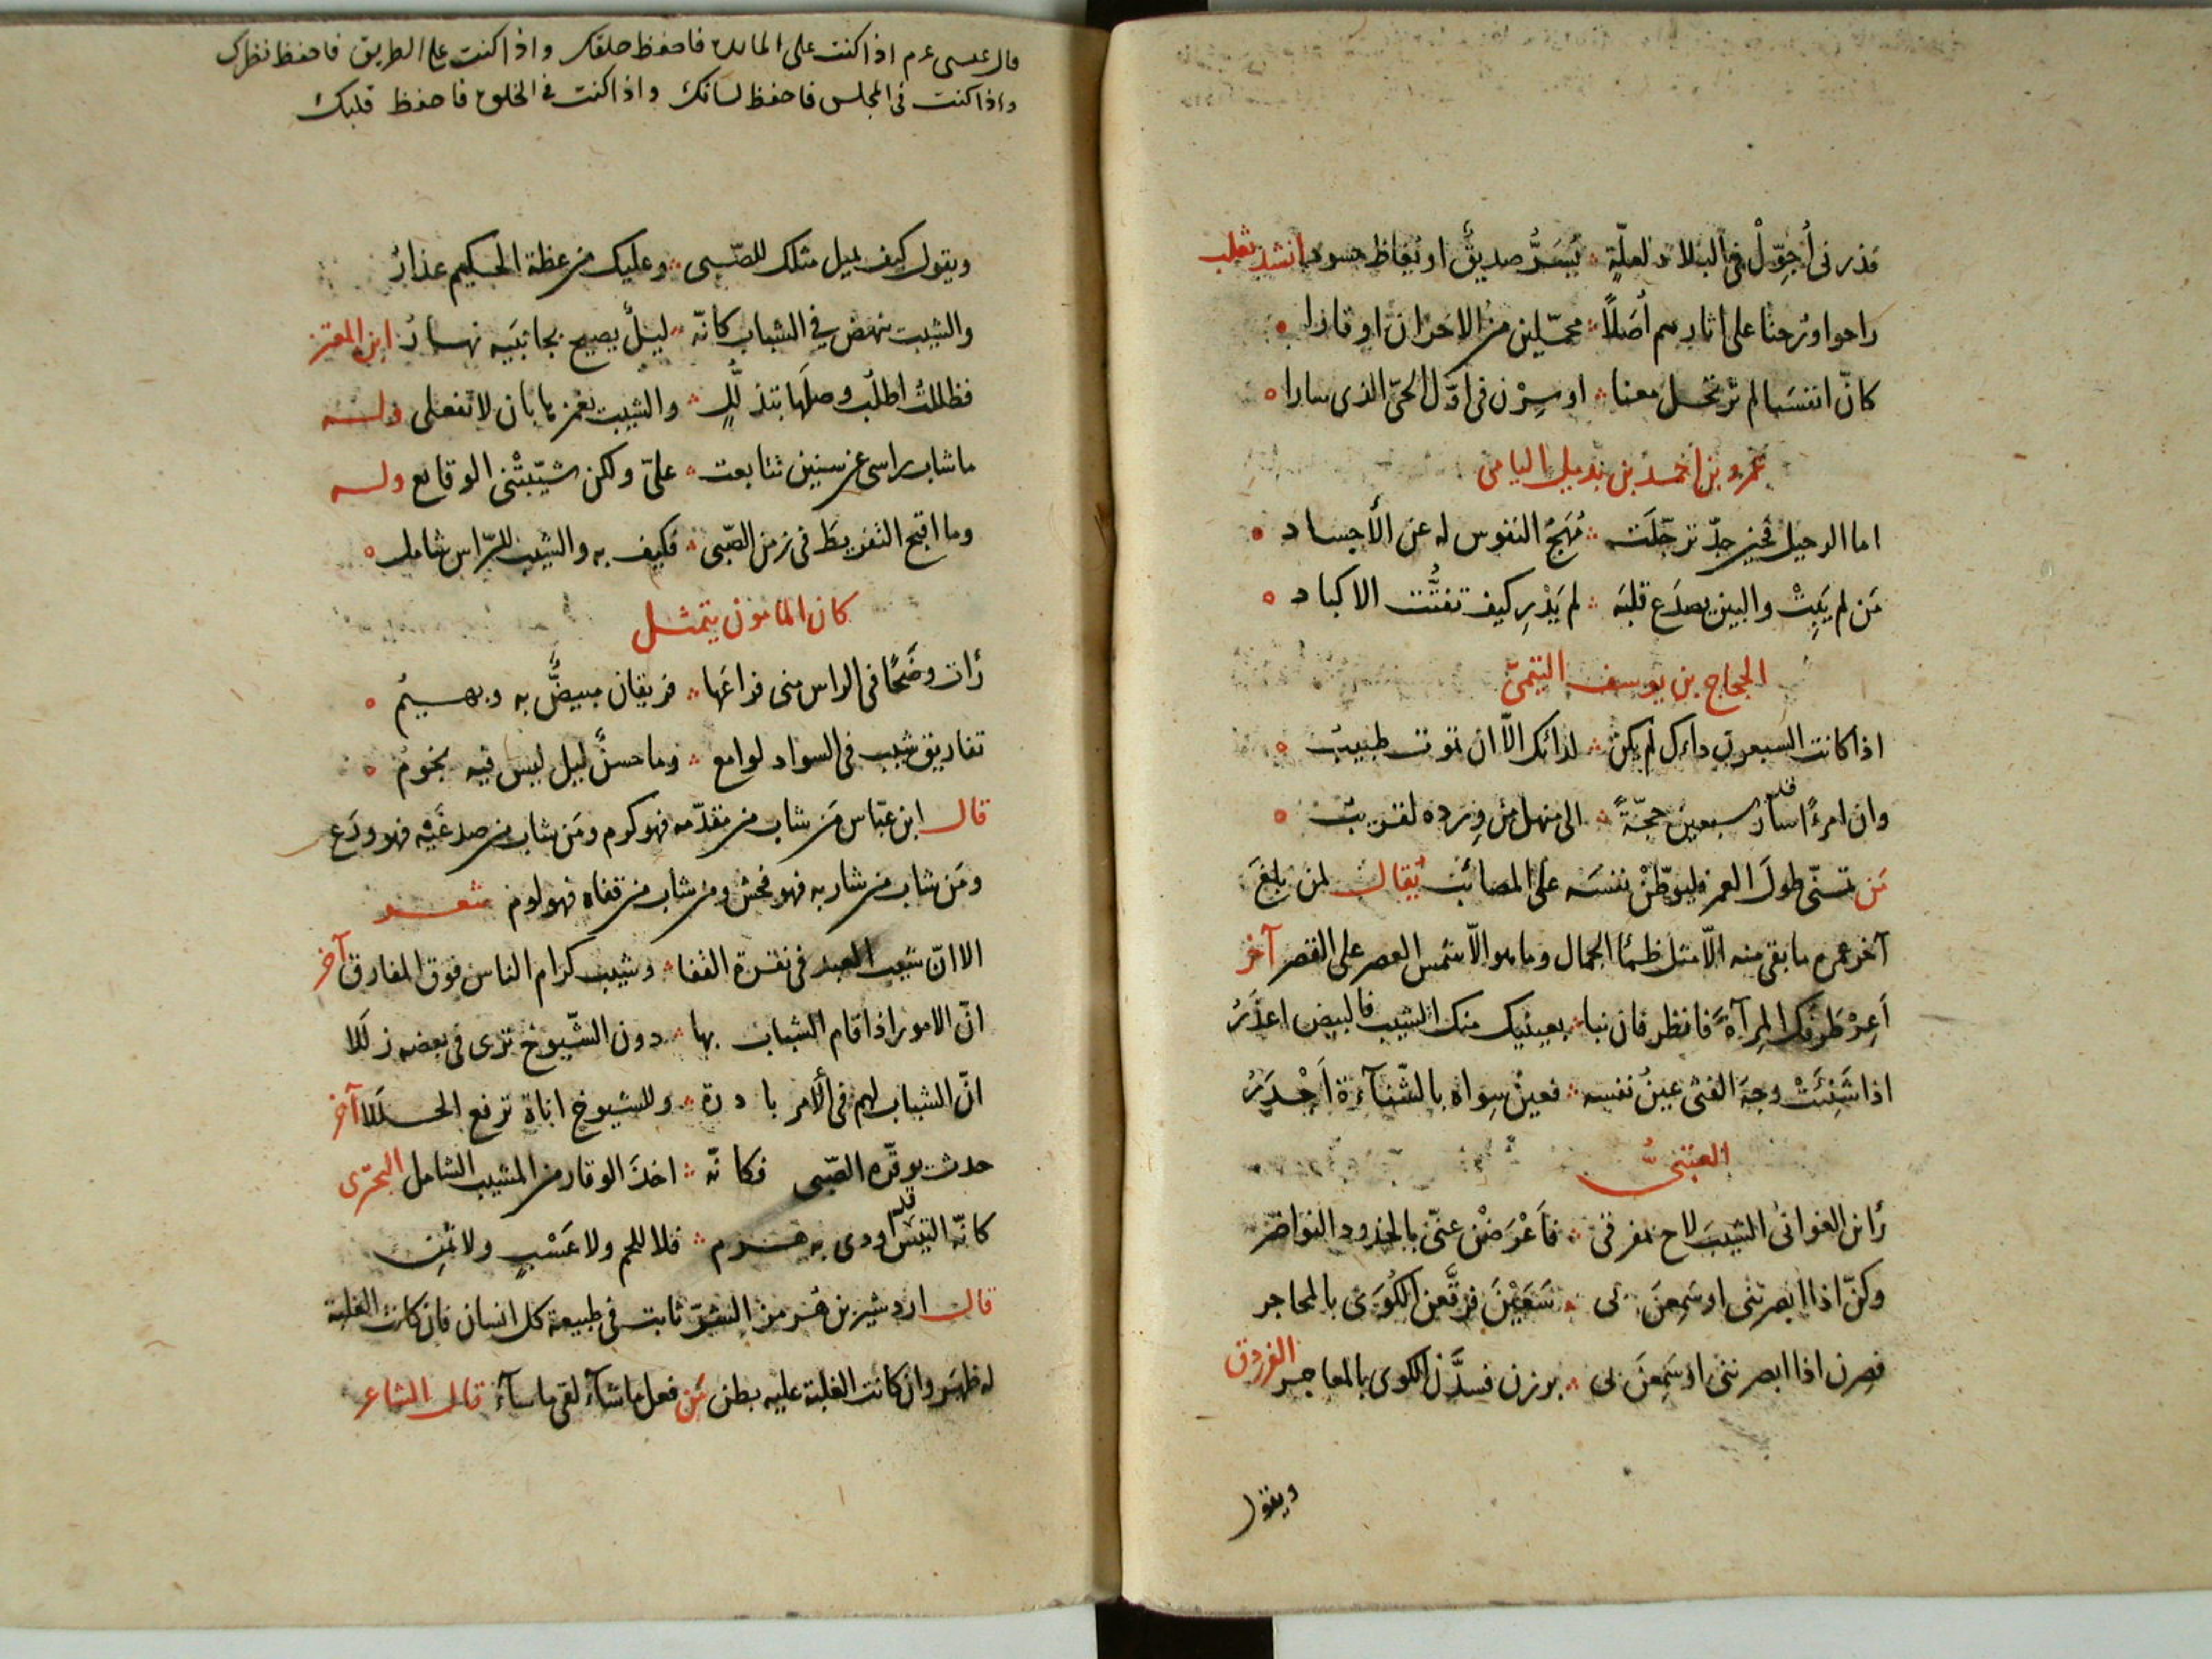 فذرنى أُجوّلْ فى البلاد لعلّهٍ ؞ يُسَرُّ صديقٌ او يُغاظ حسود انشد ثعلب
راحوا ورُحنا على اثارهم أُصَلًا ؞ محمّلين من الاحزان اوقارا
كانّ انفسنا لم ترتحل معنا ؞ او سِرْن فى اوّل الحىّ الذى سارا
عمرو بن احمد بن بديل اليامى
اما الرحيل فحين جدّ ترحّلَت ؞ مُهَجُ النفوس له عن الأجساد
مَن لم يَبِتْ والبين يصدَع قلبَه ؞ لم يَدْرِ كيف تفتُّت الاكباد
الحجاج بن يوسف التيمىّ
اذا كانت السبعون داءك لم يكن ؞ لدائك الّا ان تموت طبيب
وان امرءًا قد سار سبعين حجّةً ؞ الى منهل من وِرده لقريب
مَن تمنّى طولَ العمر فليوطّنْ نفسَه على المصائب يُقال لمن بلغَ
آخر عمره ما بقى منه الّا مثل ظمأ الحمار وما هو الّا شمس العصر على القصر آخر
أَعِرْ طَرفك المِرآةَ فانظر فان نبا ؞ بعينيك منك الشيب فالبيض اعذَرُ
اذا شَنِئَتْ وجهَ الفتى عينُ نفسه ؞ فعينُ سِواه بالشّناءَة أَجْدَرُ
العتبىُّ
رأين الغوانى الشيبَ لاح بمفرقى ؞ فأعْرَضْن عنّى بالخدود النواضر
وكنّ اذا ابصرننى او سَمِعنَ بى ؞ سَعَيْنَ فرقَّعن الكُوَى بالمحاجر
فصِرن اذا ابصرننى او سَمِعنَ بى ؞ برزن فسدَّدن الكوى بالمعاجر الفرزدق
ويقول
قال عيسى عم اذا كنت على المائدة فاحفظ حلقك واذا كنت على الطريق فاحفظ نظرك
واذا كنت فى المجلس فاحفظ لسانك واذا كنت فى الخلوة فاحفظ قلبك
ويقول كيف يميل مثلك للصّبى ؞ وعليك من عظة الحكيم عذارُ
والشيب ينهض فى الشباب كانّه ؞ ليلٌ يصيح بجانبَيه نهارُ ابن المعتز
فظللتُ اطلُب وصلَها بتذلُّلٍ ؞ والشيب يغمزها بان لا تفعلى وله
ما شاب راسى عن سنين تتابعت ؞ علىّ ولكن شيّبتْنى الوقائع وله
وما اقبح التفريطَ فى زمن الصّبى ؞ فكيف به والشيب للرّاس شامل
كان المامون يتمثل
رأت وضَحًا فى الراس منى فراعَها ؞ فريقان مبيضٌّ به وبهيمُ
تفاريق شيب فى السواد لوامع ؞ وما حسنُ ليل ليس فيه نجومُ
قال ابن عبّاس مَن شاب من مقدّمه فهو كرم ومَن شاب من صدغَيْه فهو ورَع
ومَن شاب من شاربه فهو فحش ومن شاب من قفاه فهو لوم شعر
الا انّ شيب العبد فى نقرة القفا ؞ وشيب كرام الناس فوق المفارق آخر
انّ الامور اذا قام الشباب بها ؞ دون الشّيوخ ترى فى بعضه زللا
انّ الشباب لهم فى الأمر بادرة ؞ وللشيوخ اناة ترفع الخللا آخر
حدث يوقّره الصّبى فكانّه ؞ اخذَ الوقار من المشيب الشامل البحترى
كانّه التيس قد اودى به هرم ؞ فلا للحم ولا عَسْبٍ ولا ثمن
قال اردشير بن هُرمز الشرّ ثابت فى طبيعة كل انسان فان كانت الغلبة
له ظهَر وان كانت الغلبة عليه بطن مَن فعل ما شاءَ لقى ما ساءَ قال الشاعر